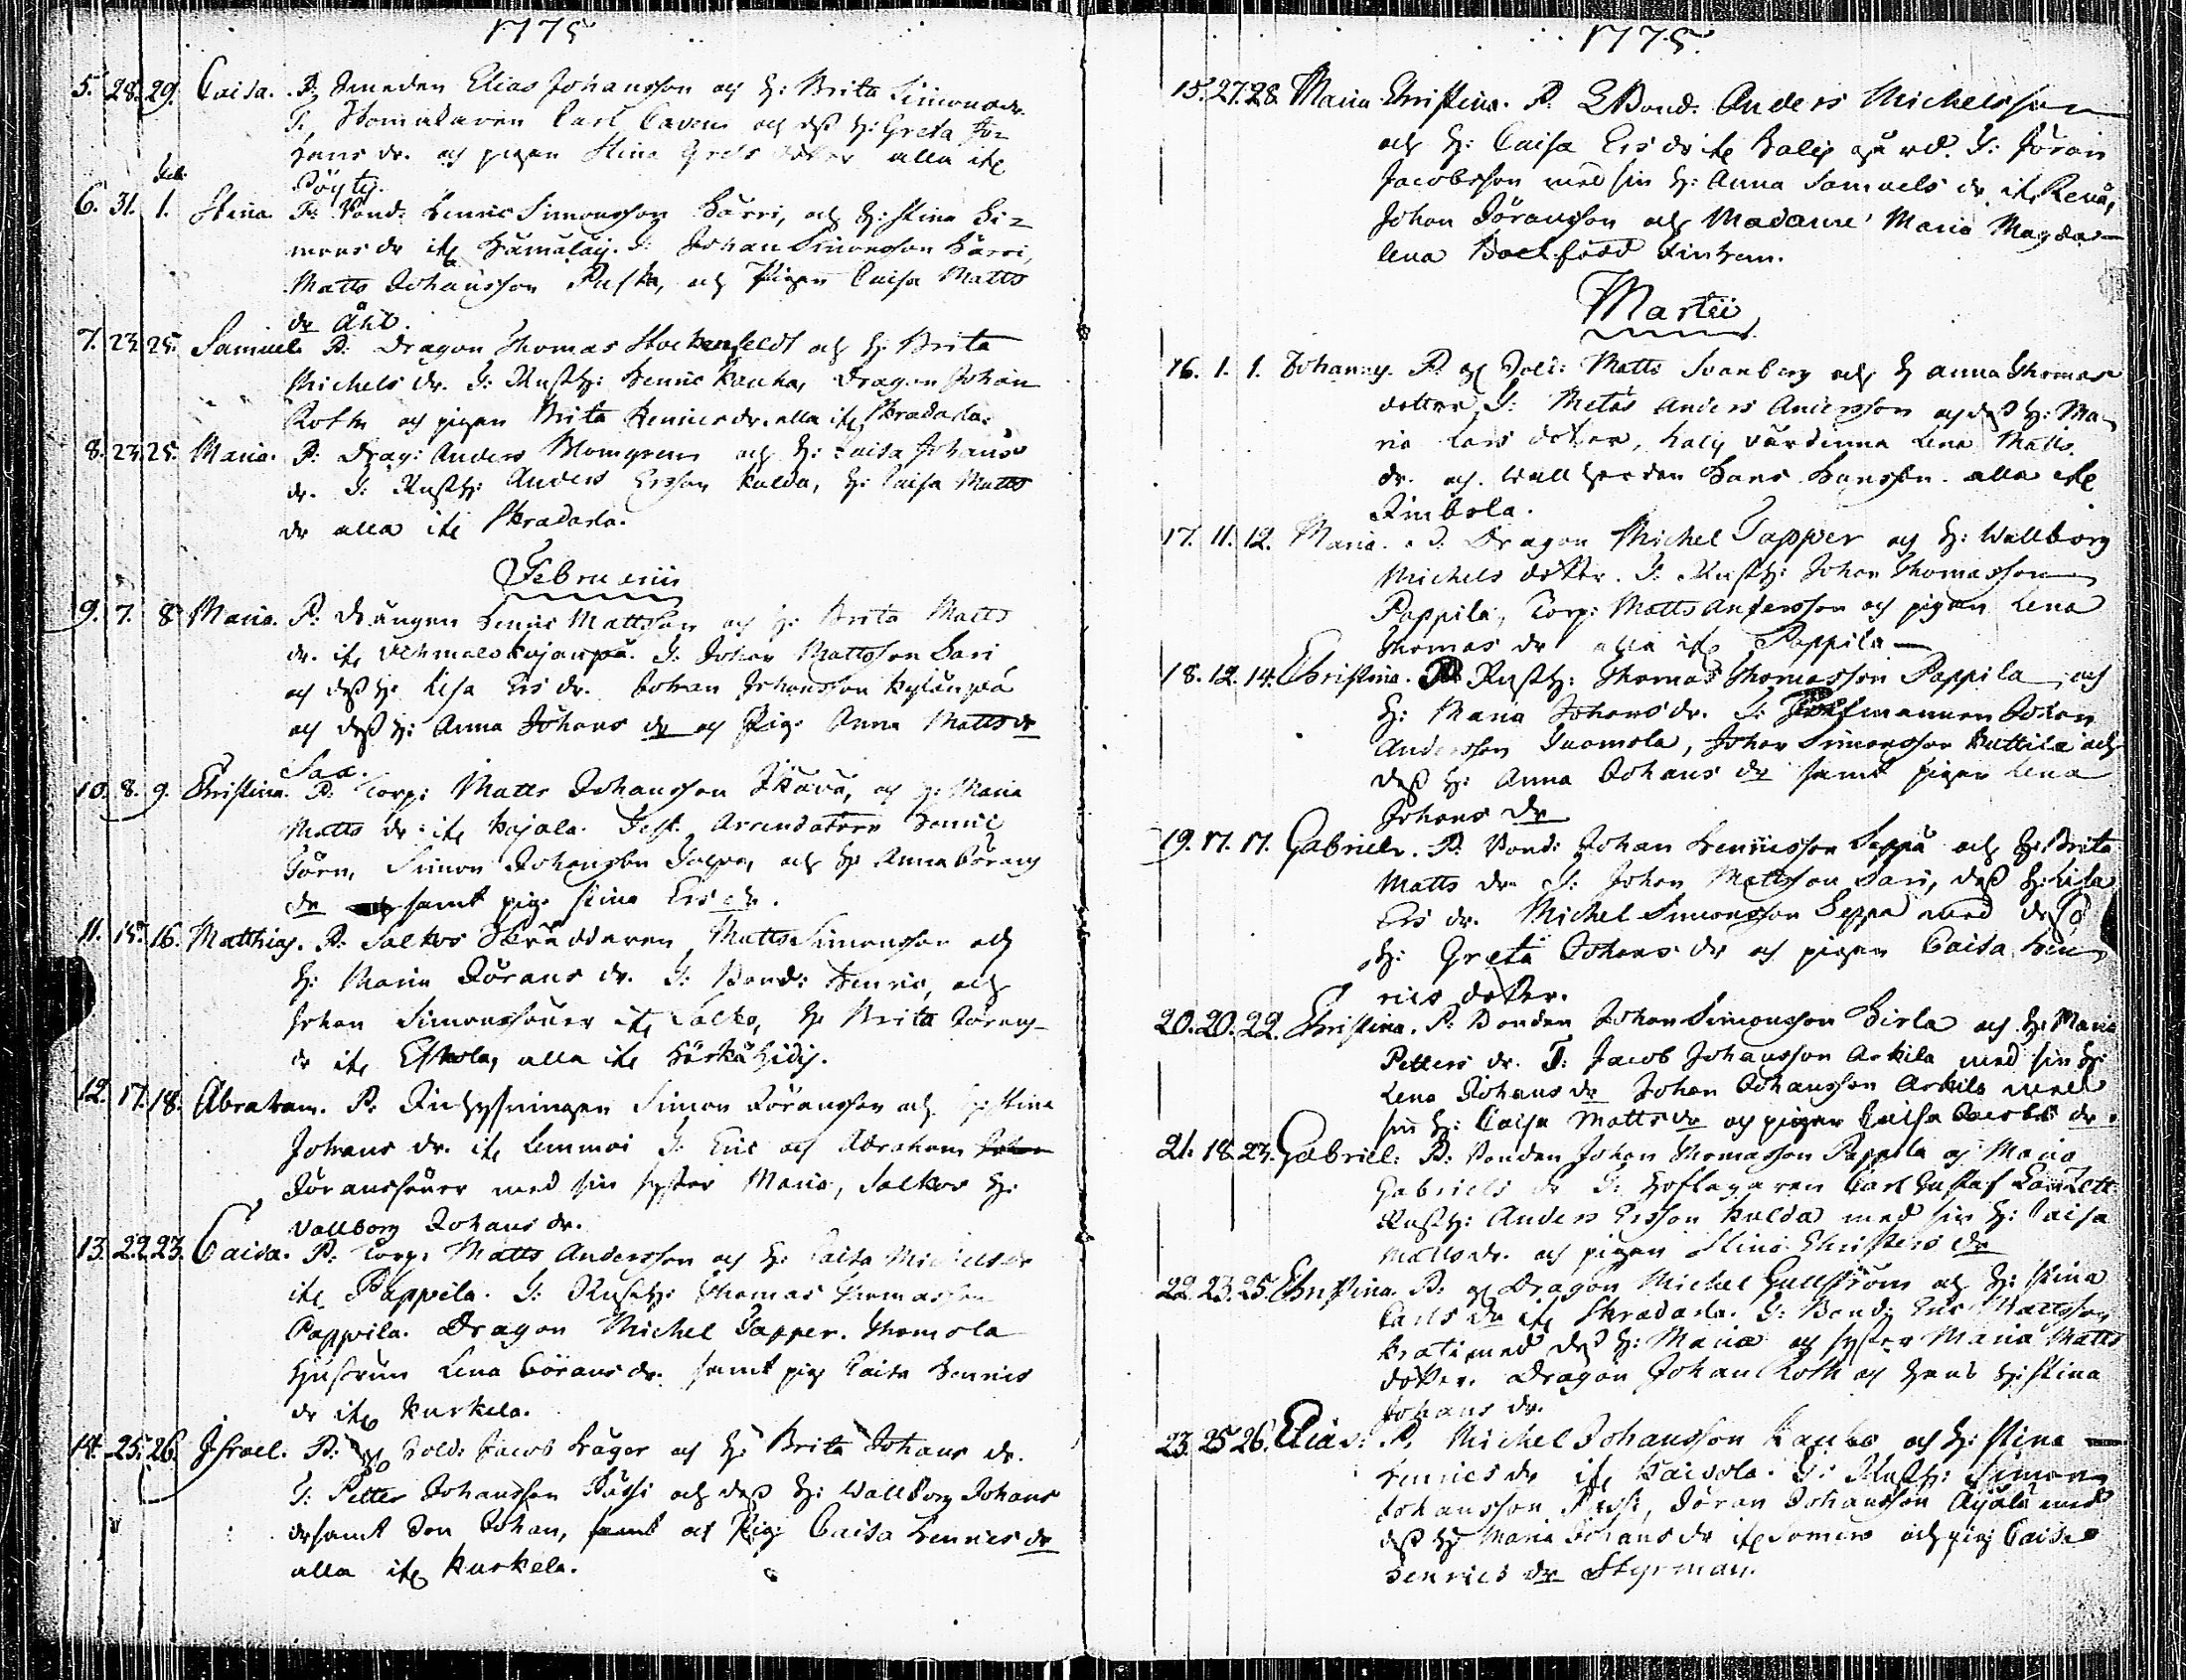 1775
5. 28. 29. Caisa. P: Smeden Elias Johansson och H: Brita Simonsdr.
T: Skomakaren Carl Caven och dess H: Greta Jo-
hans dr. och pigan Stina Grels dotter alla ifr.
Pöyty.
Feb.
6. 31. 1. Stina P: Bond: Henric Simonsson Härri, och H: Stina Si-
mons dr ifr. Hämäläis. T: Johan Simonsson Härri,
Matts Johansson Puska, och Pigan Caisa Matts
dr Åhl.
7. 23. 25. Samuel P: Dragon Thomas Stockenfeldt och H: Brita
Michels dr. T: Rusth: Henric Kauha, Dragon Johan
Roth och pigan Brita Henricsdr. alla ifr. Skradarla.
8. 23. 25. Maria. P: Drag: Anders Blomgren och H: Caisa Johans
dr. T: Rusth: Anders Ersson Kulda, H: Caisa Matts
dr alla ifr Skradarla.
Februarii
9. 7. 8 Maria. P: drängen Henric Mattsson och H: Brita Matts
dr. ifr. T: Johan Mattsson Sari
och dess H: Lisa Ers dr. Johan Johansson Kylänpää
och dess H: Anna Johans dr och Pig: Anna Matts dr
Saa.
10. 8. 9. Christina. P: Torp: Matts Johansson och H: Maria
Matts dr ifr Kojola. Test. Arrendatorn Henric
Törn, Simon Johansson och H: Anna Görans
dr samt pig: Stina Ers dr.
11. 15. 16. Matthias. P: Salkos Skräddaren Matts Simonsson och
H: Maria Görans dr. T: Bond: Henric, och
Johan Simonssöner ifr Salko, H: Brita Görans
dr ifr Eskola, alla ifr Härkähidis.
12. 17. 18. Abraham. P: Inhysningen Simon Göransson och H: Stina
Johans dr. ifr Lemmoi T: Eric och Abraham
Göranssöner med sin syster Maria, Salkos H:
Vallborg Johans dr.
13. 22. 23. Caisa. P: Torp: Matts Andersson och H: Caisa Michelsdr
ifr Pappila. T: Rusth: Thomas Thomasson
Pappila. Dragon Michel Tapper. Thomola
Hustrun Lena Görans dr. samt pig: Caisa Henrics
dr ifr Kurkela.
14. 25. 26. Israel. P: Sold: Jacob Träger och H: Brita Johans dr.
T: Petter Johansson Pässi och dess H: Wallborg Johans
dr samt Son Johan, samt och Pig: Caisa Henrics dr
alla ifr Kurkela.
1775.
15. 27. 28. Maria Christina. P. Bond: Anders Michelsson
och H: Caisa Ers dr ifr. T: Göran
Jacobsson med sin H: Anna Samuels dr ifr
Johan Göransson och Madame Maria Magda-
lena
Martii
16. 1. 1. Johannes. P: Sold: Matts Svanberg och H Anna Thomas
dotter T: Anders Andersson och dess H: Ma
ria Lars dotter, värdinna Lena Matts
dr. och Wallherden Hans Hansson alla ifr
Rimbola.
17. 11. 12. Maria. P: Dragon Michel Tapper och H: Wallborg
Michels dotter. T: Rusth: Johan Thomasson
Pappila, Torp: Matts Andersson och pigan Lena
Thomas dr alla ifr Pappila
18. 12. 14. Christina. P Rusth: Thomas Thomasson Pappila och
H: Maria Johansdr. T: Johan
Andersson Juomola, Johan Simonsson Kuttila och
dess H: Anna Johans dr samt pigan Lena
Johans dr
19. 17. 17. Gabriel. P: Bond: Johan Henricsson Seppä och H: Brita
Matts dr. T: Johan Mattsson Sari, dess H: Lisa
Ers dr. Michel Simonsson Seppä med dess
H: Greta Johans dr och pigan Caisa Hen
rics dotter.
20. 20. 22. Christina. P: Bonden Johan Simonsson Sirla och H: Maria
Petters dr. T: Jacob Johansson Arkila med sin H:
Lena Johans dr Johan Johansson Arkila med
sin H: Caisa Matts dr och pigan Caisa Jacobs dr.
21. 18. 23. Gabriel: P: Bonden Johan Thomasson Pappila och Maria
Gabriels dr T: Hofslagaren Carl Gustaf
Rusth: Anders Ersson Kulda med sin H: Caisa
Matts dr. och pigan Stina Christers dr
22. 23. 25. Christina. P: Dragon Michel Gullström och H: Stina
Carls dr ifr Skradarla. T: Bond: Eric Mattsson
Krati med dess H: Maria och syster Maria Matts
dotter. Dragon Johan Roth och hans H: Stina
Johans dr.
23. 25 26. Elias: P. Michel Johansson Kauko och H: Stina
Henrics dr ifr Kaivola. T: Rusth: Simon
Johansson Göran Johansson Äijälä med
dess H: Maria Johans dr ifr Somero och pig: Caisa
Henrics dr Styrman.